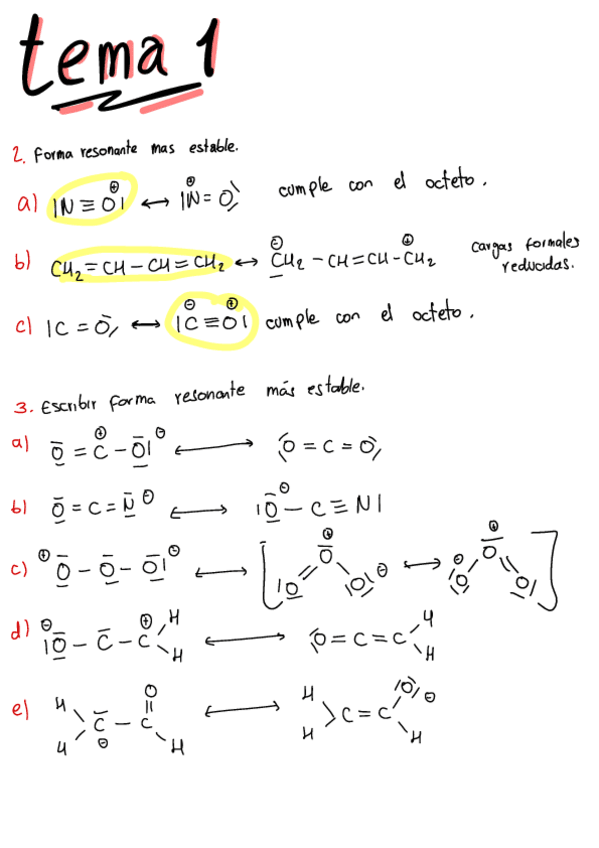 tema 1
2. Forma resonante mas estable.
a) |N≡O|⊕ ↔ |N⊕=O cumple con el octeto.
b) CH₂=CH-CH=CH₂ ↔ ⊖CH₂-CH=CH-CH₂⊕ cargas formales
reducidas.
c) |C=O ↔ |C⊖≡O⊕| cumple con el octeto.
3. Escribir forma resonante más estable.
a) O=C⊕-O|⊖ ↔ O=C=O
b) O=C=N⊖ ↔ |O⊖-C≡N|
c) ⊕O-O-O|⊖ ↔ [ O⊕ ↔ O⊕ ]
|O |O|⊖ ⊖|O O|
d) ⊖|O-C-C⊕ H H ↔ O=C=C H H
e) H H C⊖-C O H ↔ H H C=C |O|⊖ H